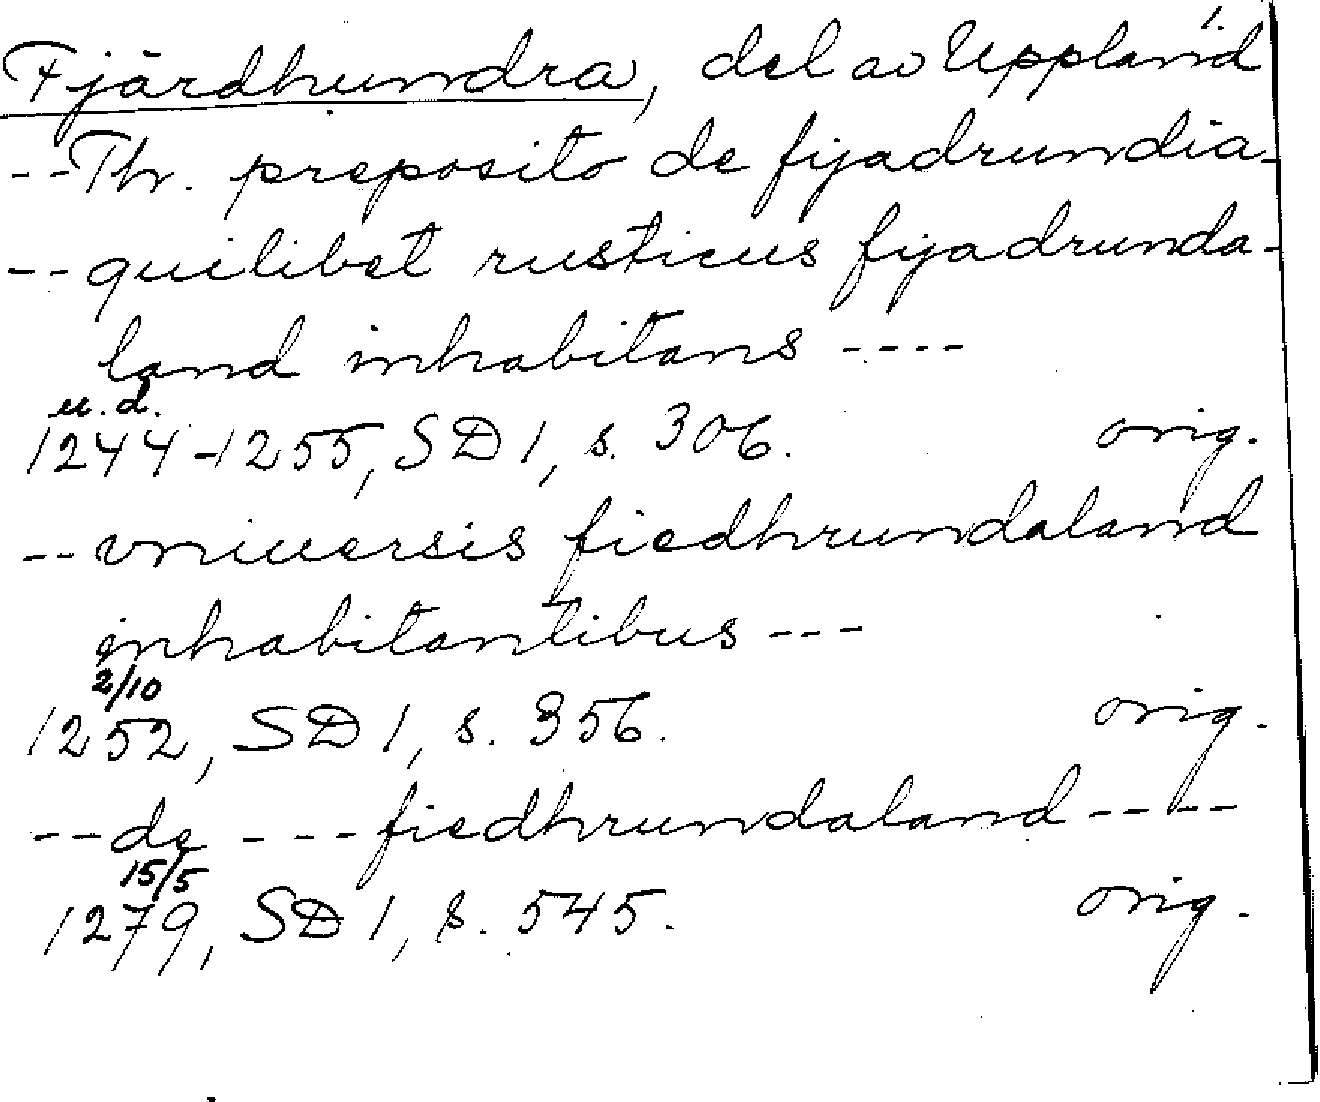 1.
Fjärdhundra, del av Uppland
--Th. preposito de fijadrundia-
--quilibet rusticus fijadrunda-
land inhabitans ----
u. d.
1244-1255, SD 1, s. 306. orig.
--vniuersis fiedhrundaland
inhabitantibus ---
2/10
1252, SD 1, s. 356. orig.
--de ---fiedhrundaland----
15/5
1279, SD 1, s. 545. orig.